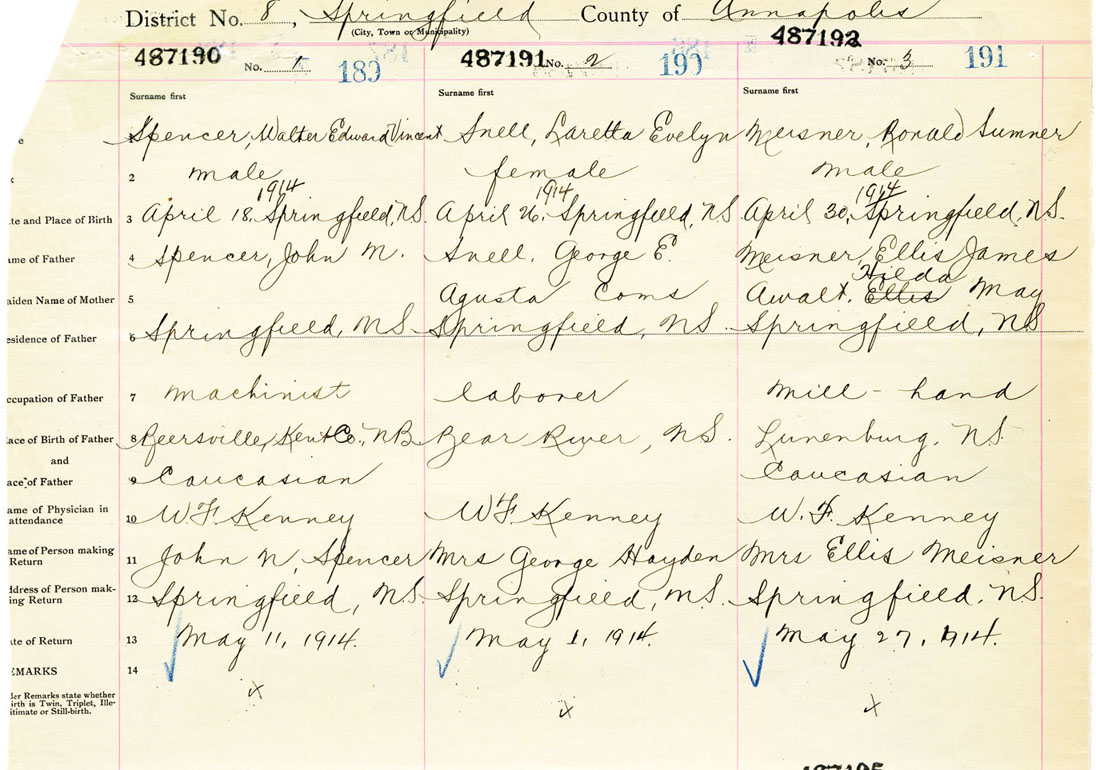 District No. 8, Springfield County of Annapolis
(City, Town or Municipality)
487190 No. 1 189 487191 No. 2 190 487192 No. 3 191
Surname first Surname first Surname first
e Spencer, Walter Edward Vincent Snell, Laretta Evelyn Meisner, Ronald Sumner
2 male female male
1914 1914 1914
te and Place of Birth 3 April 18, Springfield, N.S. April 26, Springfield, NS April 30, Springfield, N.S.
ame of Father 4 Spencer, John N. Snell, George E. Meisner, Ellis James
Hilda
aiden Name of Mother 5 Agusta Coms Awalt, Ellis May
esidence of Father 6 Springfield, NS Springfield, NS. Springfield, NS
ccupation of Father 7 machinist laborer mill-hand
ace of Birth of Father 8 Beersville, Kent Co., NB Bear River, NS. Lunenburg, NS
and
ace of Father 9 Caucasian Caucasian
ame of Physician in
attendance 10 WF Kenney WF Kenney W. F. Kenney
ame of Person making
Return 11 John N. Spencer Mrs George Hayden Mrs Ellis Meisner
ddress of Person mak-
ing Return 12 Springfield, N.S. Springfield, N.S. Springfield, N.S.
te of Return 13 May 11, 1914. May 1, 1914. May 27, 1914.
EMARKS 14
der Remarks state whether
irth is Twin, Triplet, Ille-
itimate or Still-birth.
x x x